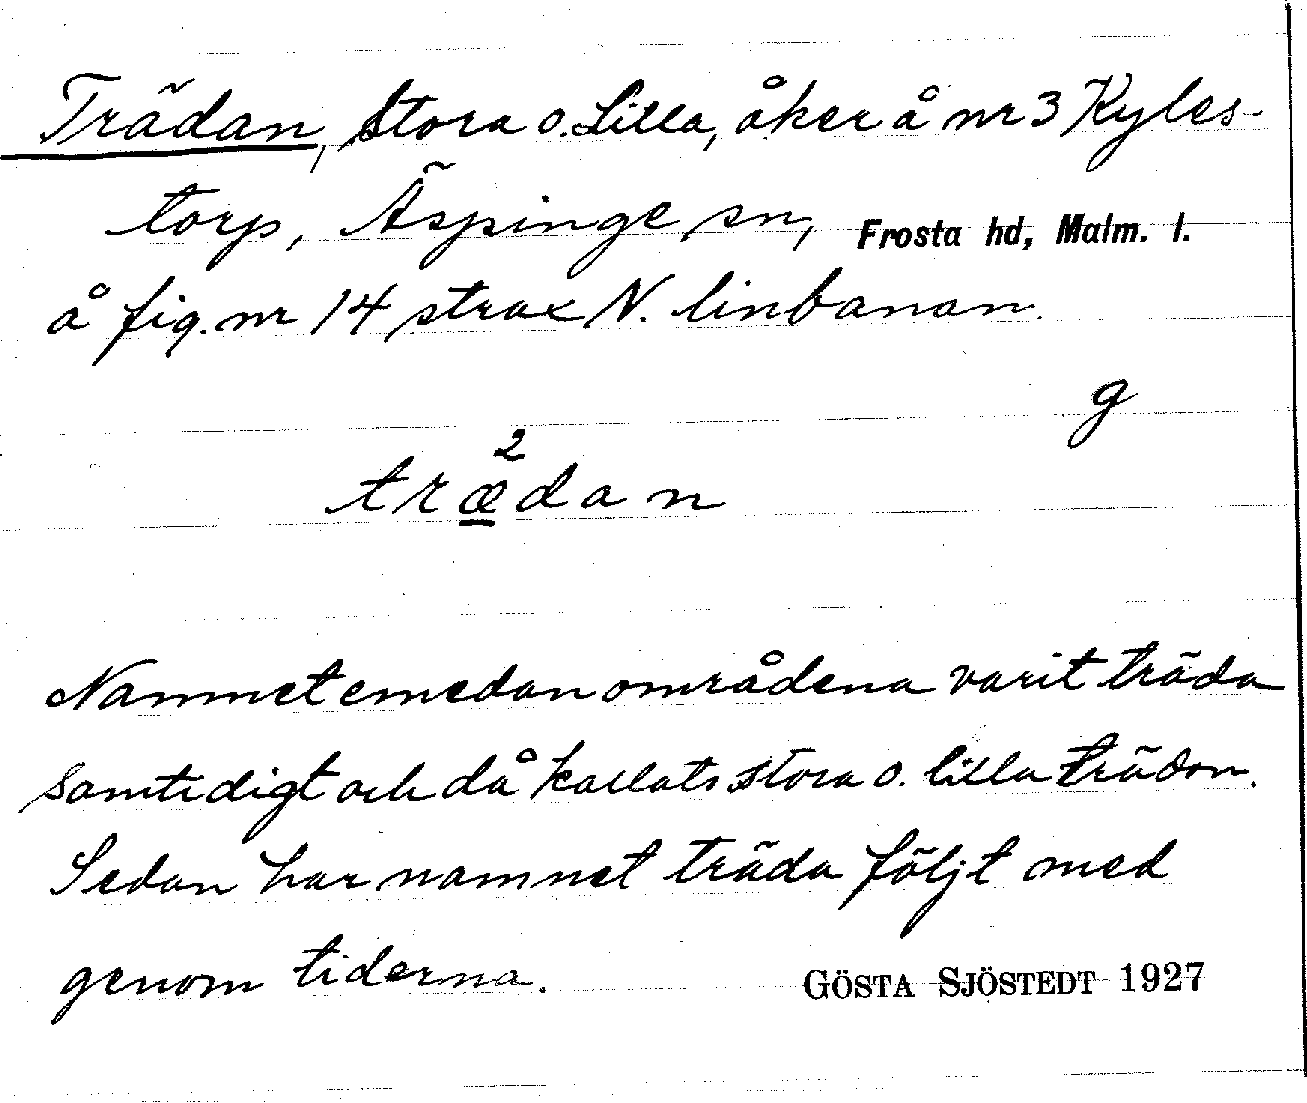 Trädan, Stora o. Lilla, åker å nr 3 Kyles-
torp, Äspinge sn, Frosta hd, Malm. l.
å fig. nr 14 strax N. linbanan.
g
træ²dan
Namnet emedan områdena varit träda
samtidigt och då kallats stora o. lilla trädan.
Sedan har namnet träda följt med
genom tiderna.
GÖSTA SJÖSTEDT 1927